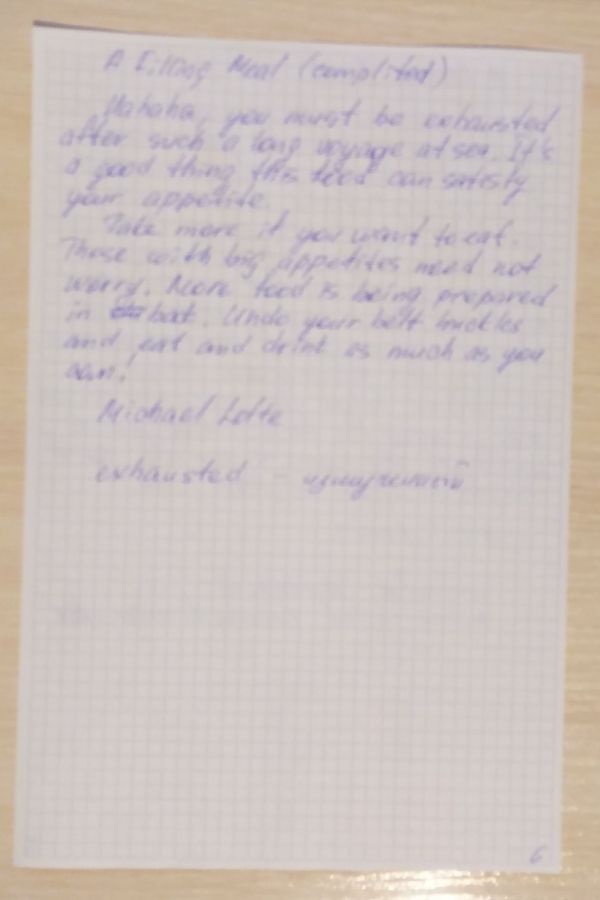 A Filling Meal (complited)
Hahaha, you must be exhausted
after such a long voyage at sea. It's
a good thing this food can satisfy
your appetite.
Take more if you want to eat.
Those with big appetites need not
worry. More food is being prepared
in bat. Undo your belt buckles
and eat and drink as much as you
can!
Michael Lotte
exhausted - измученный
6